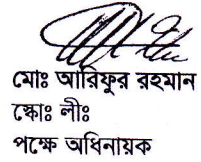 মোঃ আরিফুর রহমান
স্কোঃ লীঃ
পক্ষে অধিনায়ক